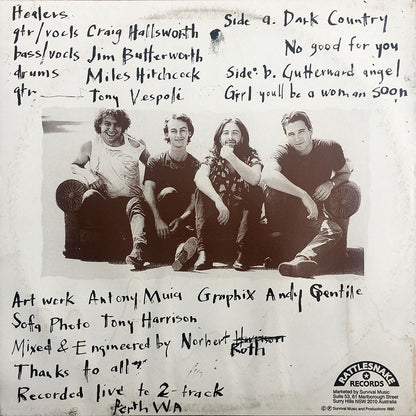 Healers
gtr/vocls Craig Hallsworth
bass/vocls Jim Butterworth
drums Miles Hitchcock
gtr Tony Vespoli
Side a. Dark Country
No good for you
Side b. Gutterward angel
Girl youll be a woman soon
Art work Antony Muia Graphix Andy Gentile
Sofa Photo Tony Harrison
Mixed & Engineered by Norbert
Roth
Thanks to all
Recorded live to 2-track
Perth WA
RATTLESNAKE
RECORDS
Marketed by Survival Music
Suite 53, 61 Marlborough Street
Surry Hills NSW 2010 Australia
Survival Music and Productions 1990